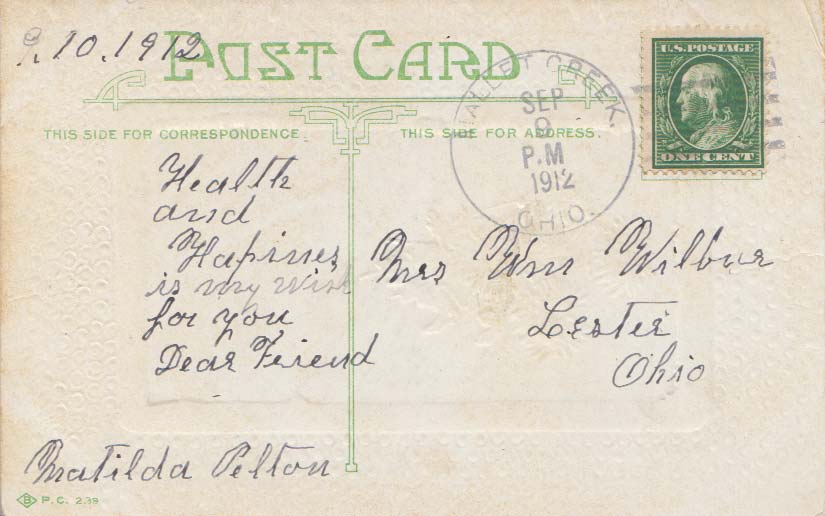 9.10.1912
POST CARD
THIS SIDE FOR CORRESPONDENCE.
THIS SIDE FOR ADDRESS.
MALLET CREEK.
SEP
9
P.M
1912
OHIO.
U.S. POSTAGE
ONE CENT
Health
and
Hapines
is my wish
for you
Dear Friend
Matilda Pelton
Mrs Wm Wilbur
Lester
Ohio
B P.C. 239